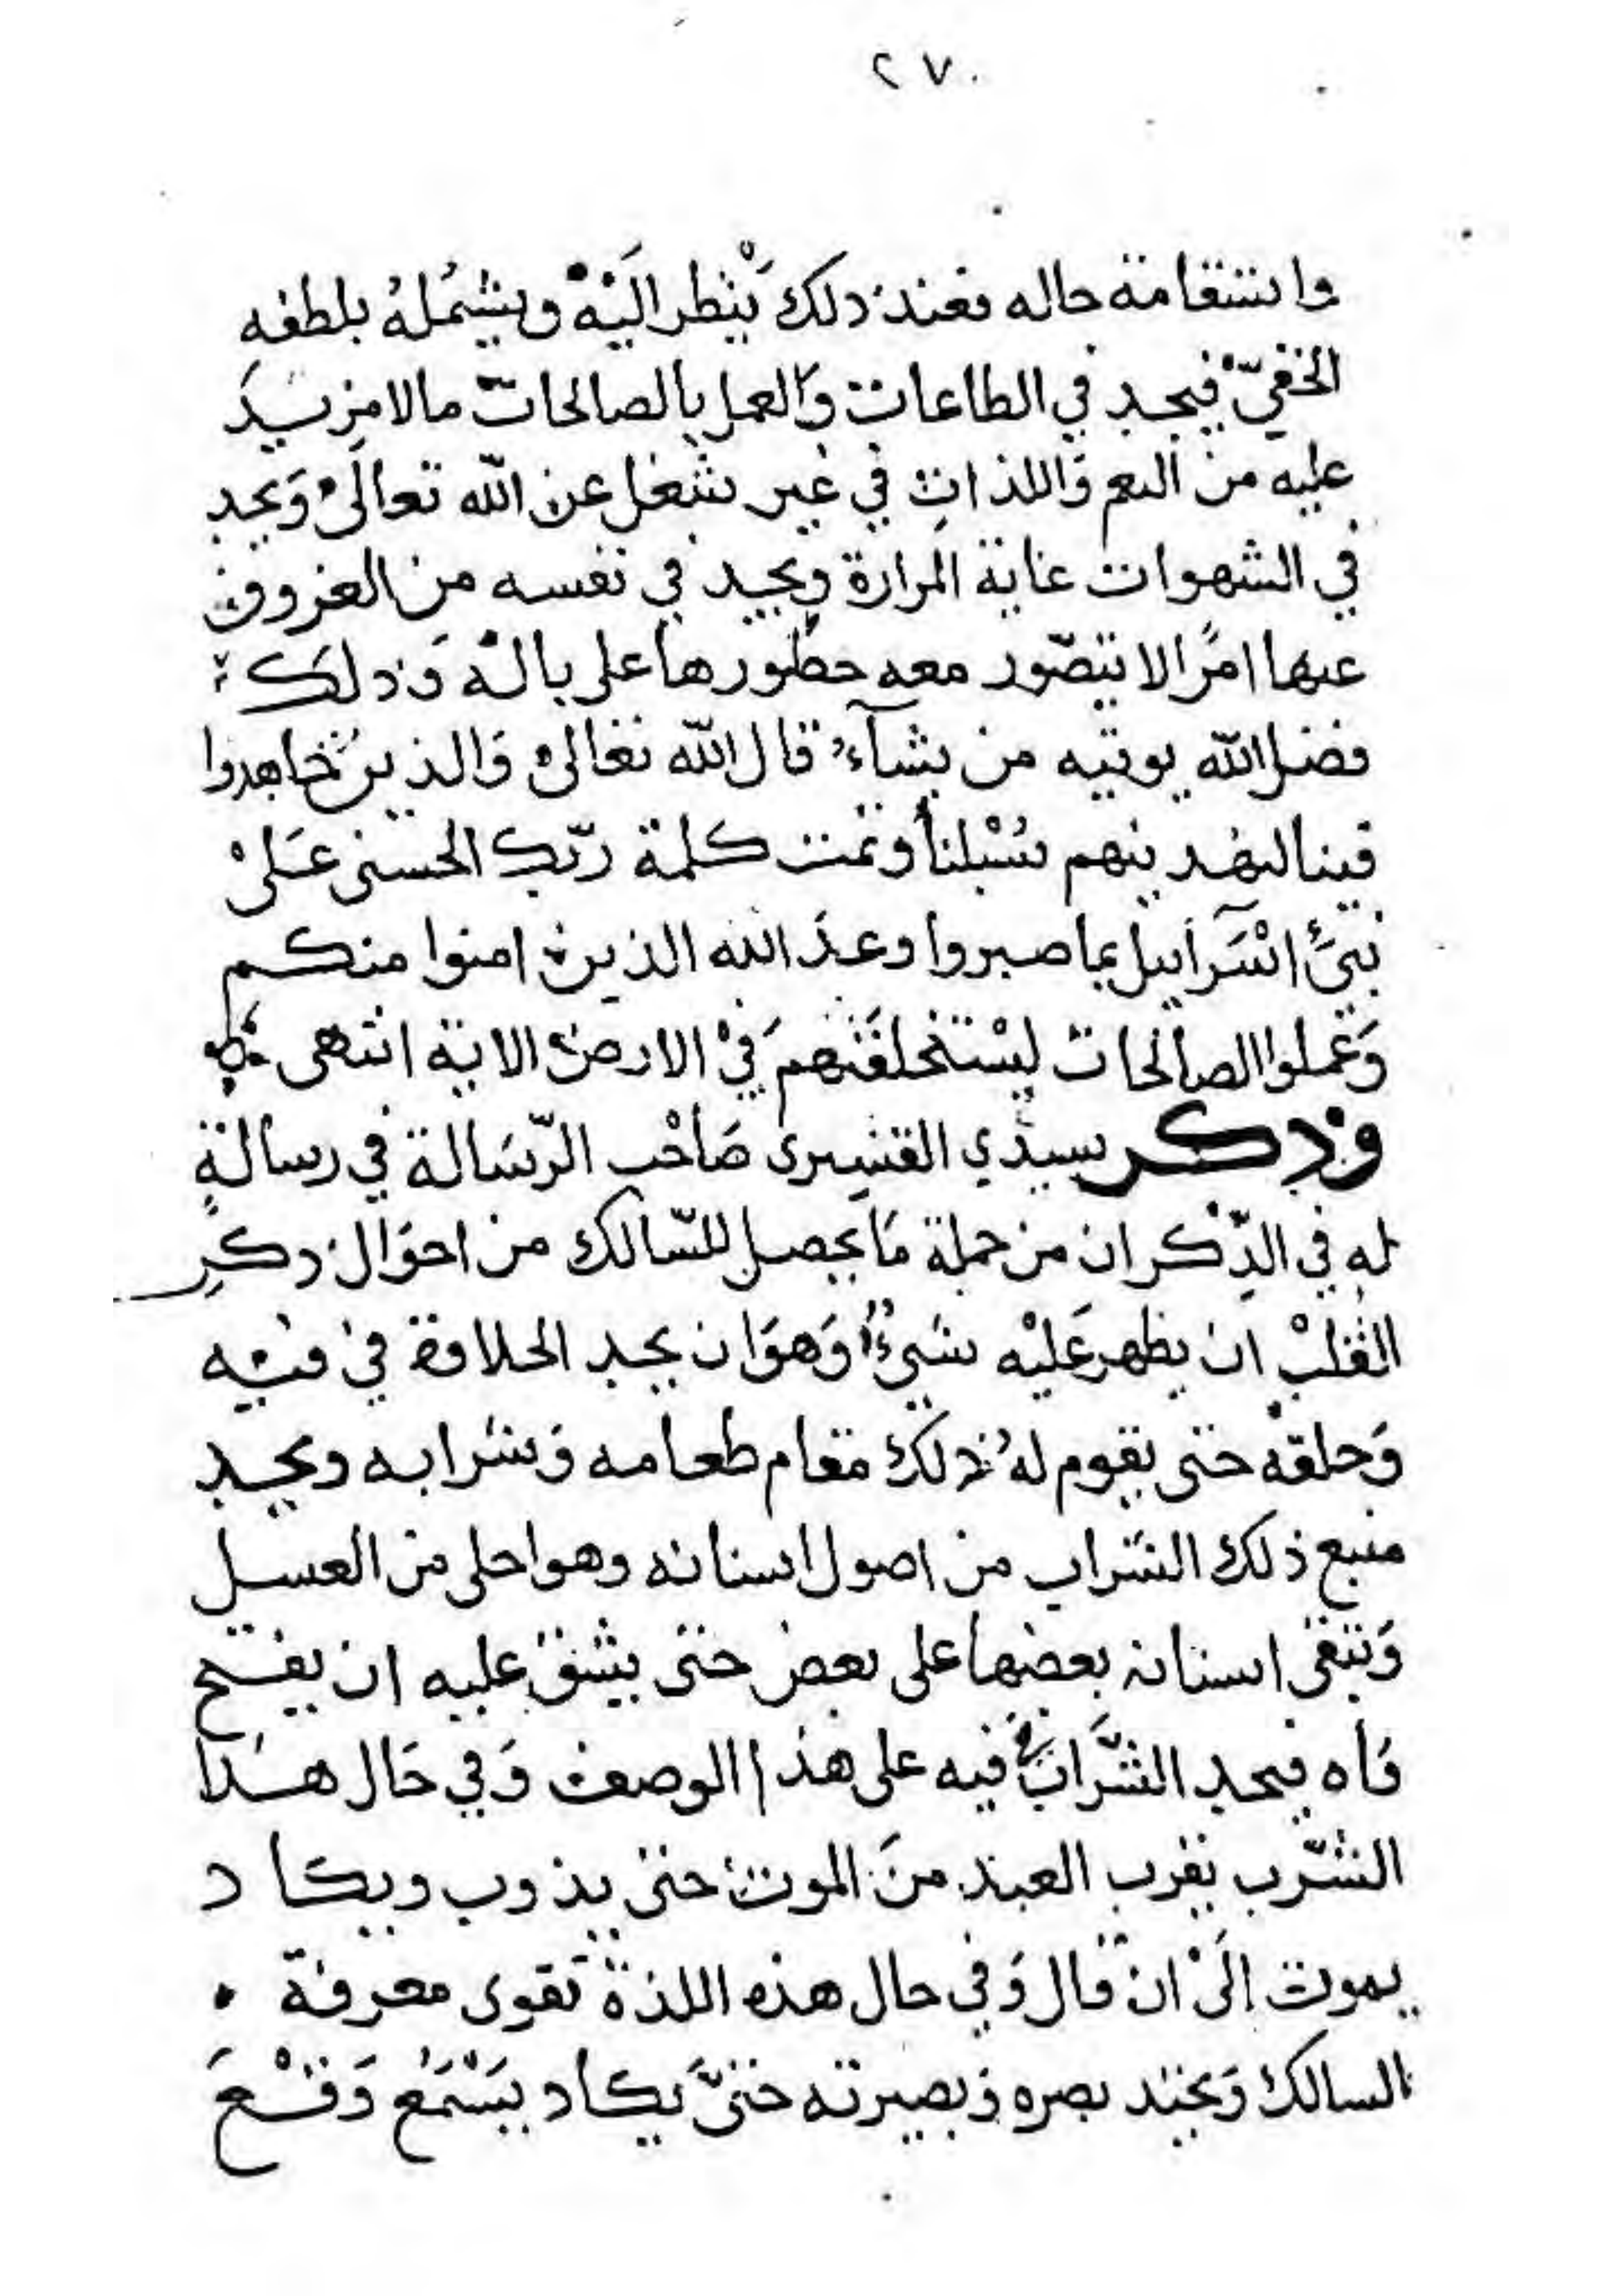 ٢٧٠
واستقامة حاله فعند ذلك يَنْظر اليْه ويشمُلهُ بلطفهِ
الخفيّ فيجد في الطاعات وَالعمل بالصالحات مالا مزيد
عليه من النعم وَاللذاتِ في غير شغل عن الله تعالى وَيجد
في الشهوات غاية المرارة ويجد في نفسه من العزوف
عنها امرًا لا يتصّور معه خطورها على باله وَذلك
فضل الله يوتيه من يشآء قال الله تعالى وَالذين جَاهدوا
فينا لنهدينهم سُبْلنا وتمت كلمة رّبك الحسنى عَلىْ
بَنىِٓ اسْرَآييل بما صبروا وعدَ الله الذين امنوا منكم
وَعملوا الصالحات ليسْتخلفَنهم فىْ الارض الاية انتهى
وذكر سيدي القشيرى صَاحْب الرّسَالة في رسالةٍ
له في الذِّكر ان من جملة مَا يحصل للسّالك من احوَال ذكرِ
القلبْ ان يظهر عَليْه شىءٌ وَهوَ ان يجد الحلاوة في فيه
وَحلقه حتى يقوم لهُ ذلك مقام طعامه وَشرابه ويجد
منبع ذلك الشراب من اصول اسنانه وهو احلى من العسل
وَتبقى اسنانه بعضها على بعض حتى يشق عليه ان يفتح
فاه فيجد الشَّرابَ فيه على هذا الوصف وَفي حَال هذا
الشّرب يقرب العبد منَ الموت حتى يذوب ويكاد
يموت الَىْ ان قال وَفي حال هذه اللذة تقوى معرفة
السالك وَيحتد بصره وَبصيرته حتىّ يكاد يَسْمَع وَقْعَ